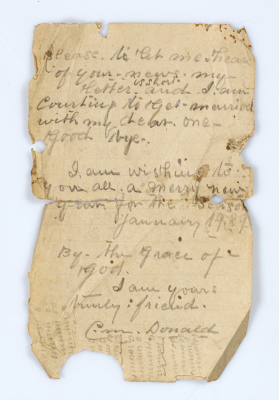 Please. to let me. hear
of your. news. my
is short.
letter. and. I. am
Courting to get married
with my dear. one-
Good bye.
I am wishing to
you all. a merry new
year. for me.
January 19.
By. the Grace of
God.
I am yours
truely: friend.
C.m. Donald